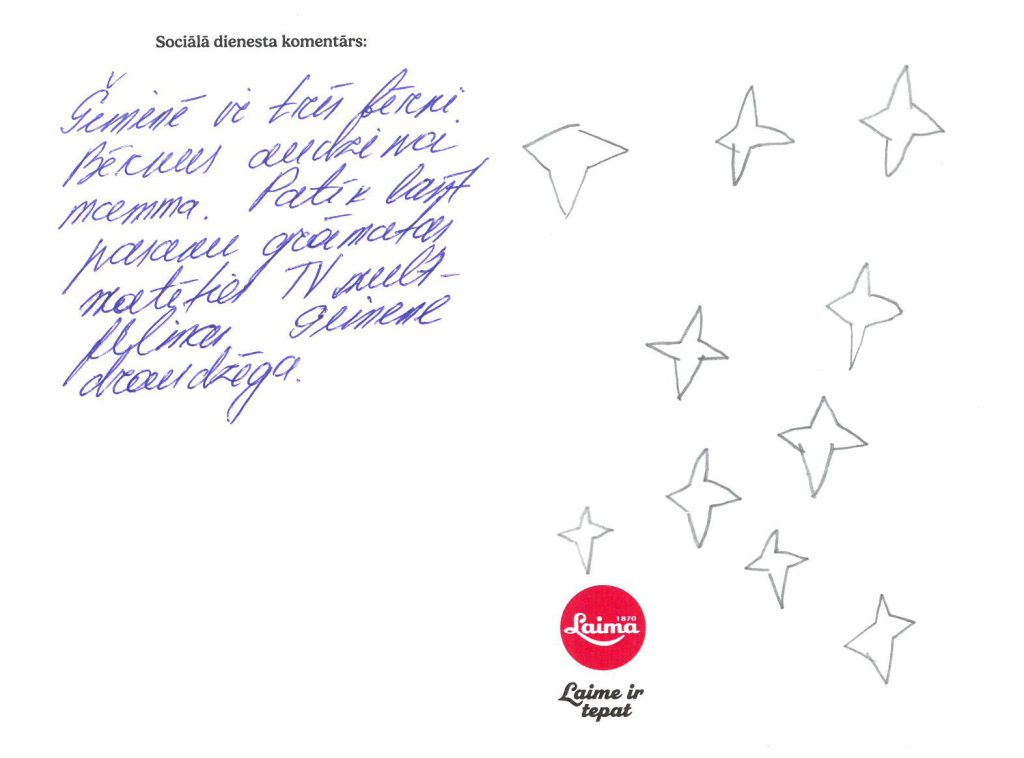 Sociālā dienesta komentārs:
Ģimenē ir trīs bērni.
Bērnus audzina
mamma. Patīk lasīt
pasaku grāmatas
skatīties TV mult-
filmas ģimene
draudzīga.
Laima
1870
Laime ir
tepat